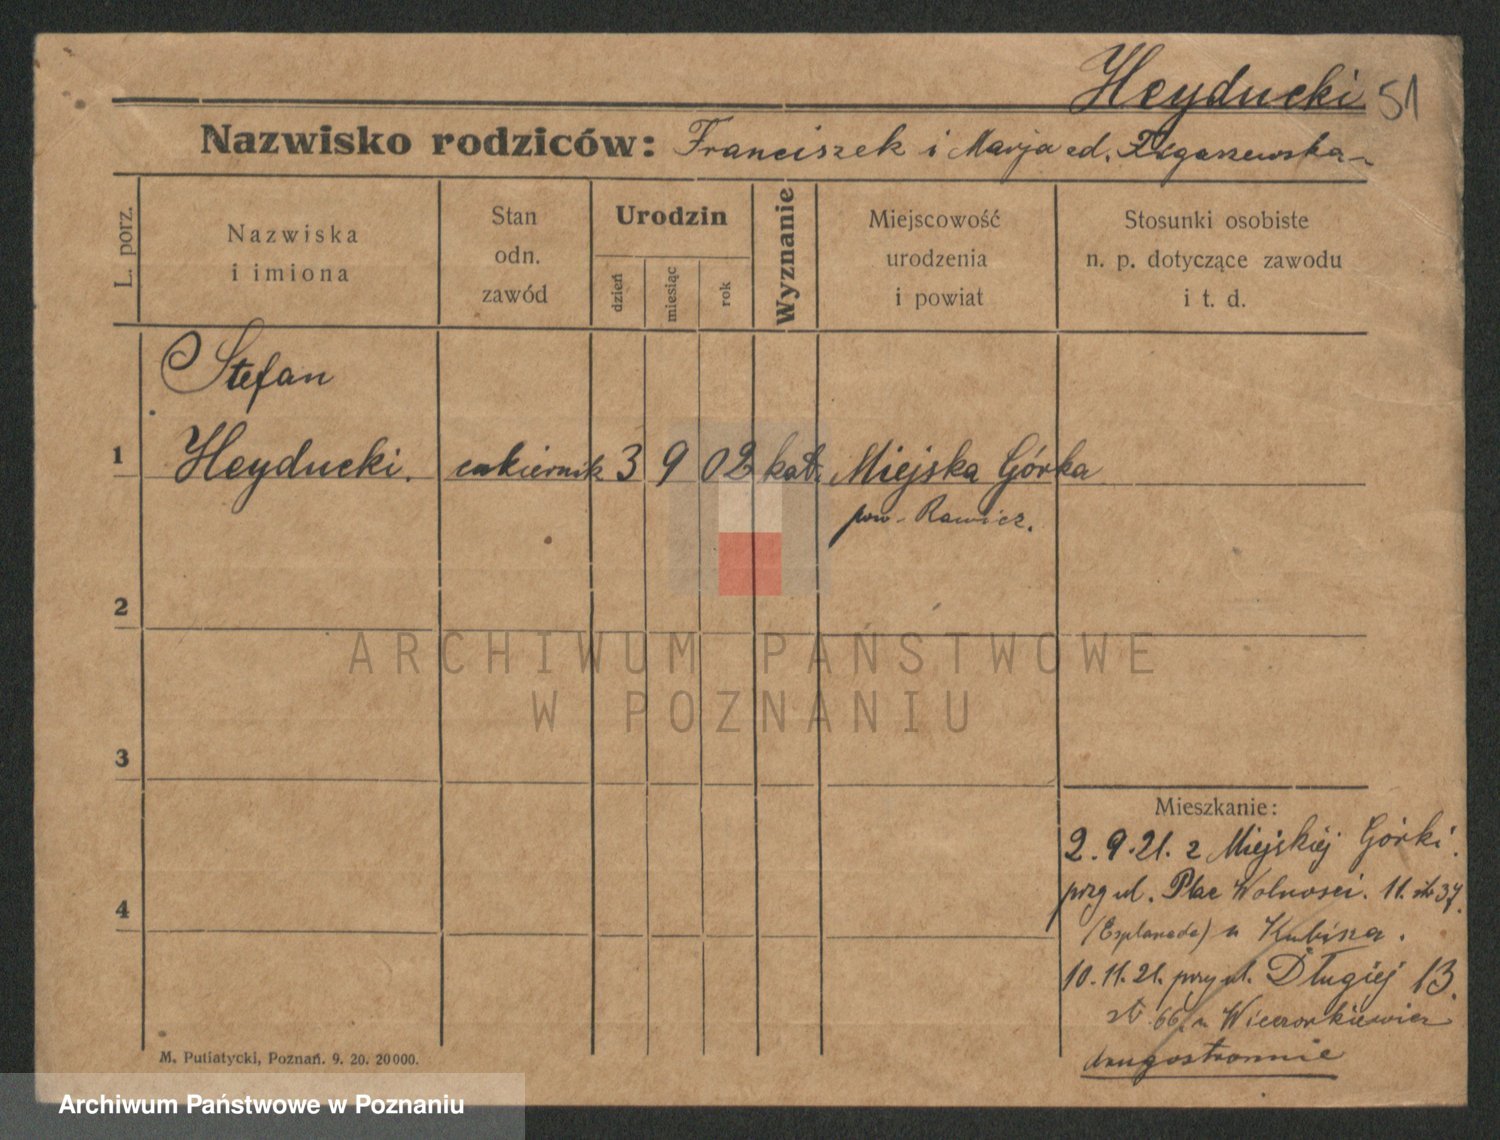 Heyducki 51
Nazwisko rodziców: Franciszek i Marja
L. porz.
Nazwiska
i imiona
Stan
odn.
zawód
Urodzin
dzień
miesiąc
rok
Wyznanie
Miejscowość
urodzenia
i powiat
Stosunki osobiste
n. p. dotyczące zawodu
i t. d.
Stefan
1 Heyducki. cukiernik 3 9 02 kat. Miejska Górka
pow. Rawicz.
2
ARCHIWUM PAŃSTWOWE
W POZNANIU
3
Mieszkanie:
2.9.21. z Miejskiej Górki.
przy ul. Plac Wolnosci. 11.
(Esplanada) u Kubisza.
4
10.11.21. przy ul. Długiej 13.
66 u Wieczorkiewicz
drugostronnie
M. Putiatycki, Poznań. 9. 20. 20000.
Archiwum Państwowe w Poznaniu